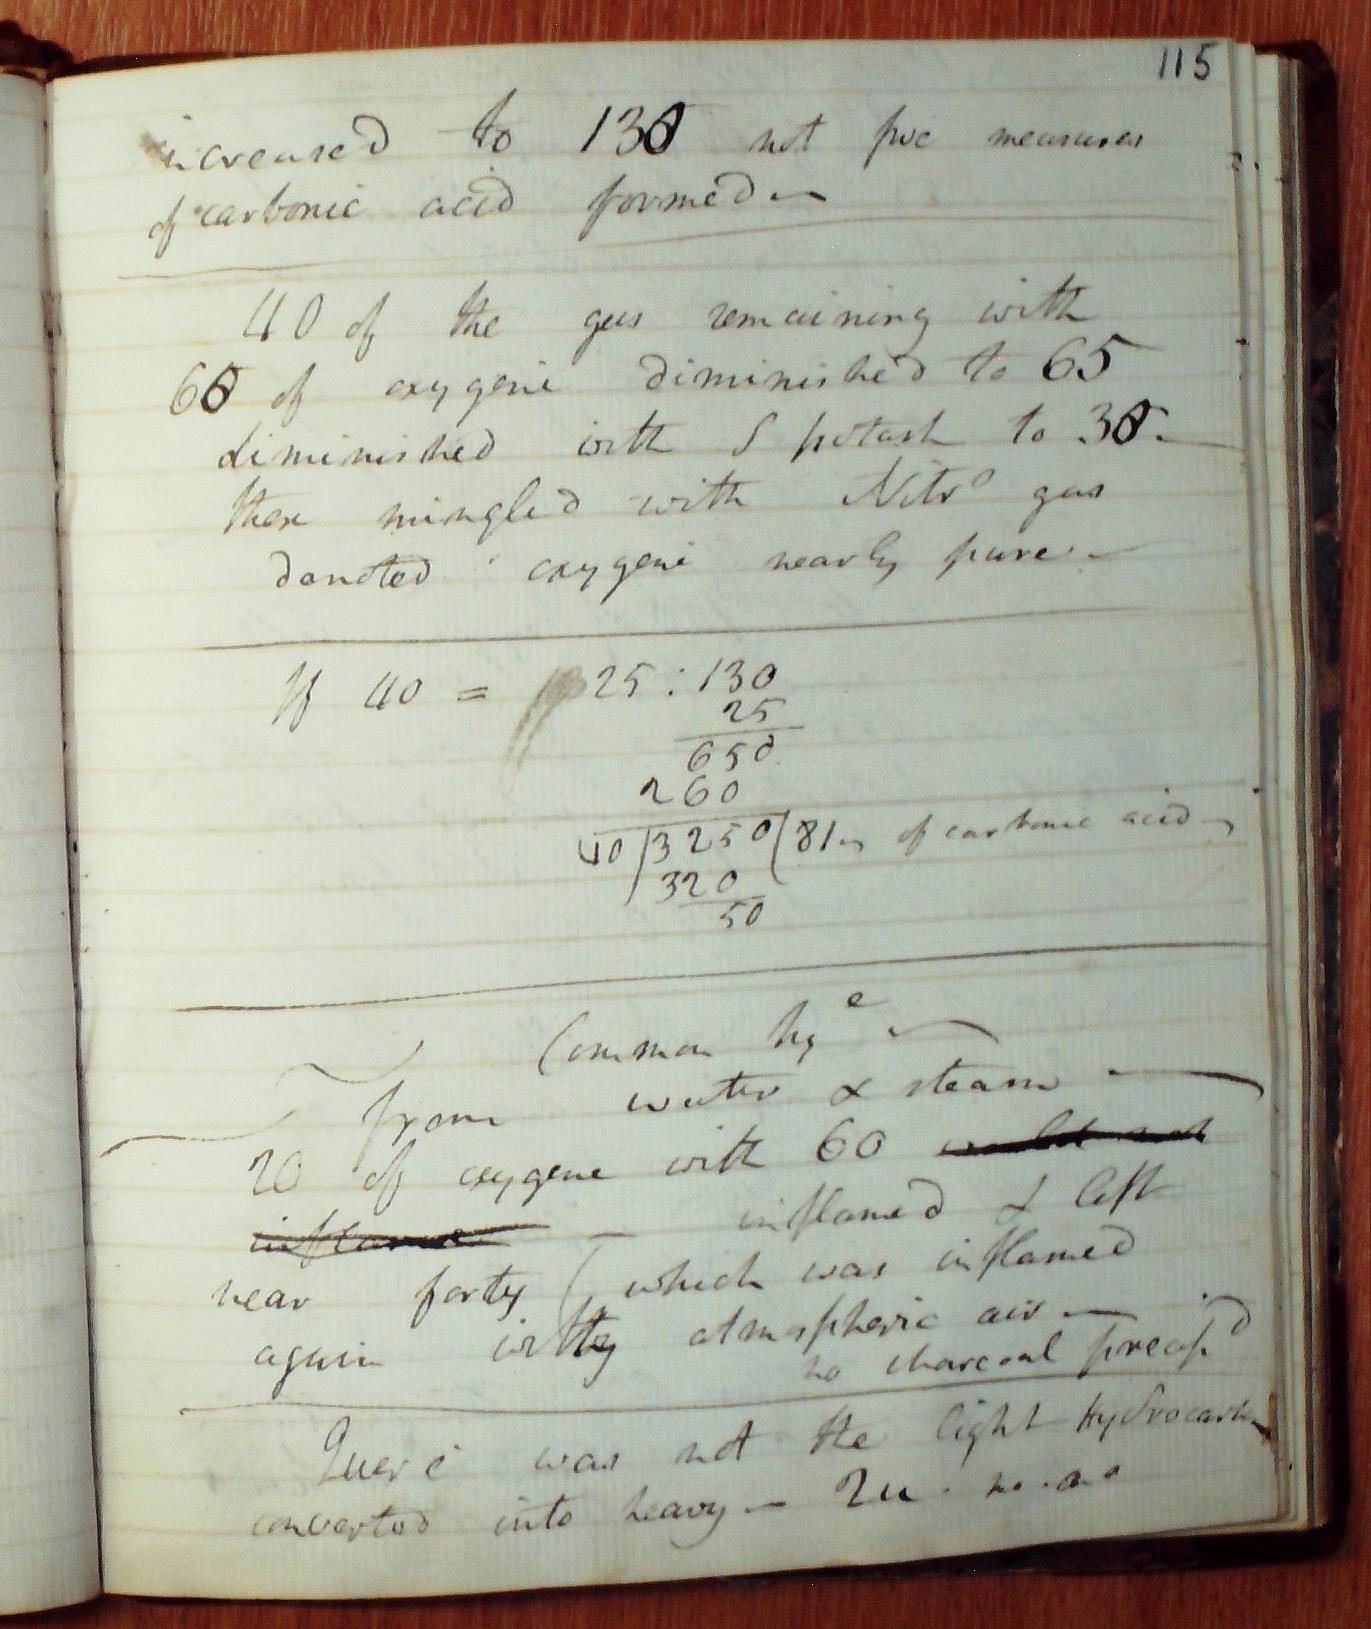 115
increased to 130 not five measures
of carbonic acid formed —
40 of the gas remaining with
60 of oxygene diminished to 65
diminished with S potash to 30. —
then mingled with Nitro gas
denoted oxygene nearly pure. —
If 40 = 25 : 130
25
650
260
40/3250(81 — of carbonic acid —
320
50
Common hye —
from water & steam —
20 of oxygene with 60 would not
inflame — inflamed & left
near forty (which was inflamed
again with atmospheric air —
no charcoal precipd
Quere was not the light Hydrocarb
converted into heavy — Qu. no. no